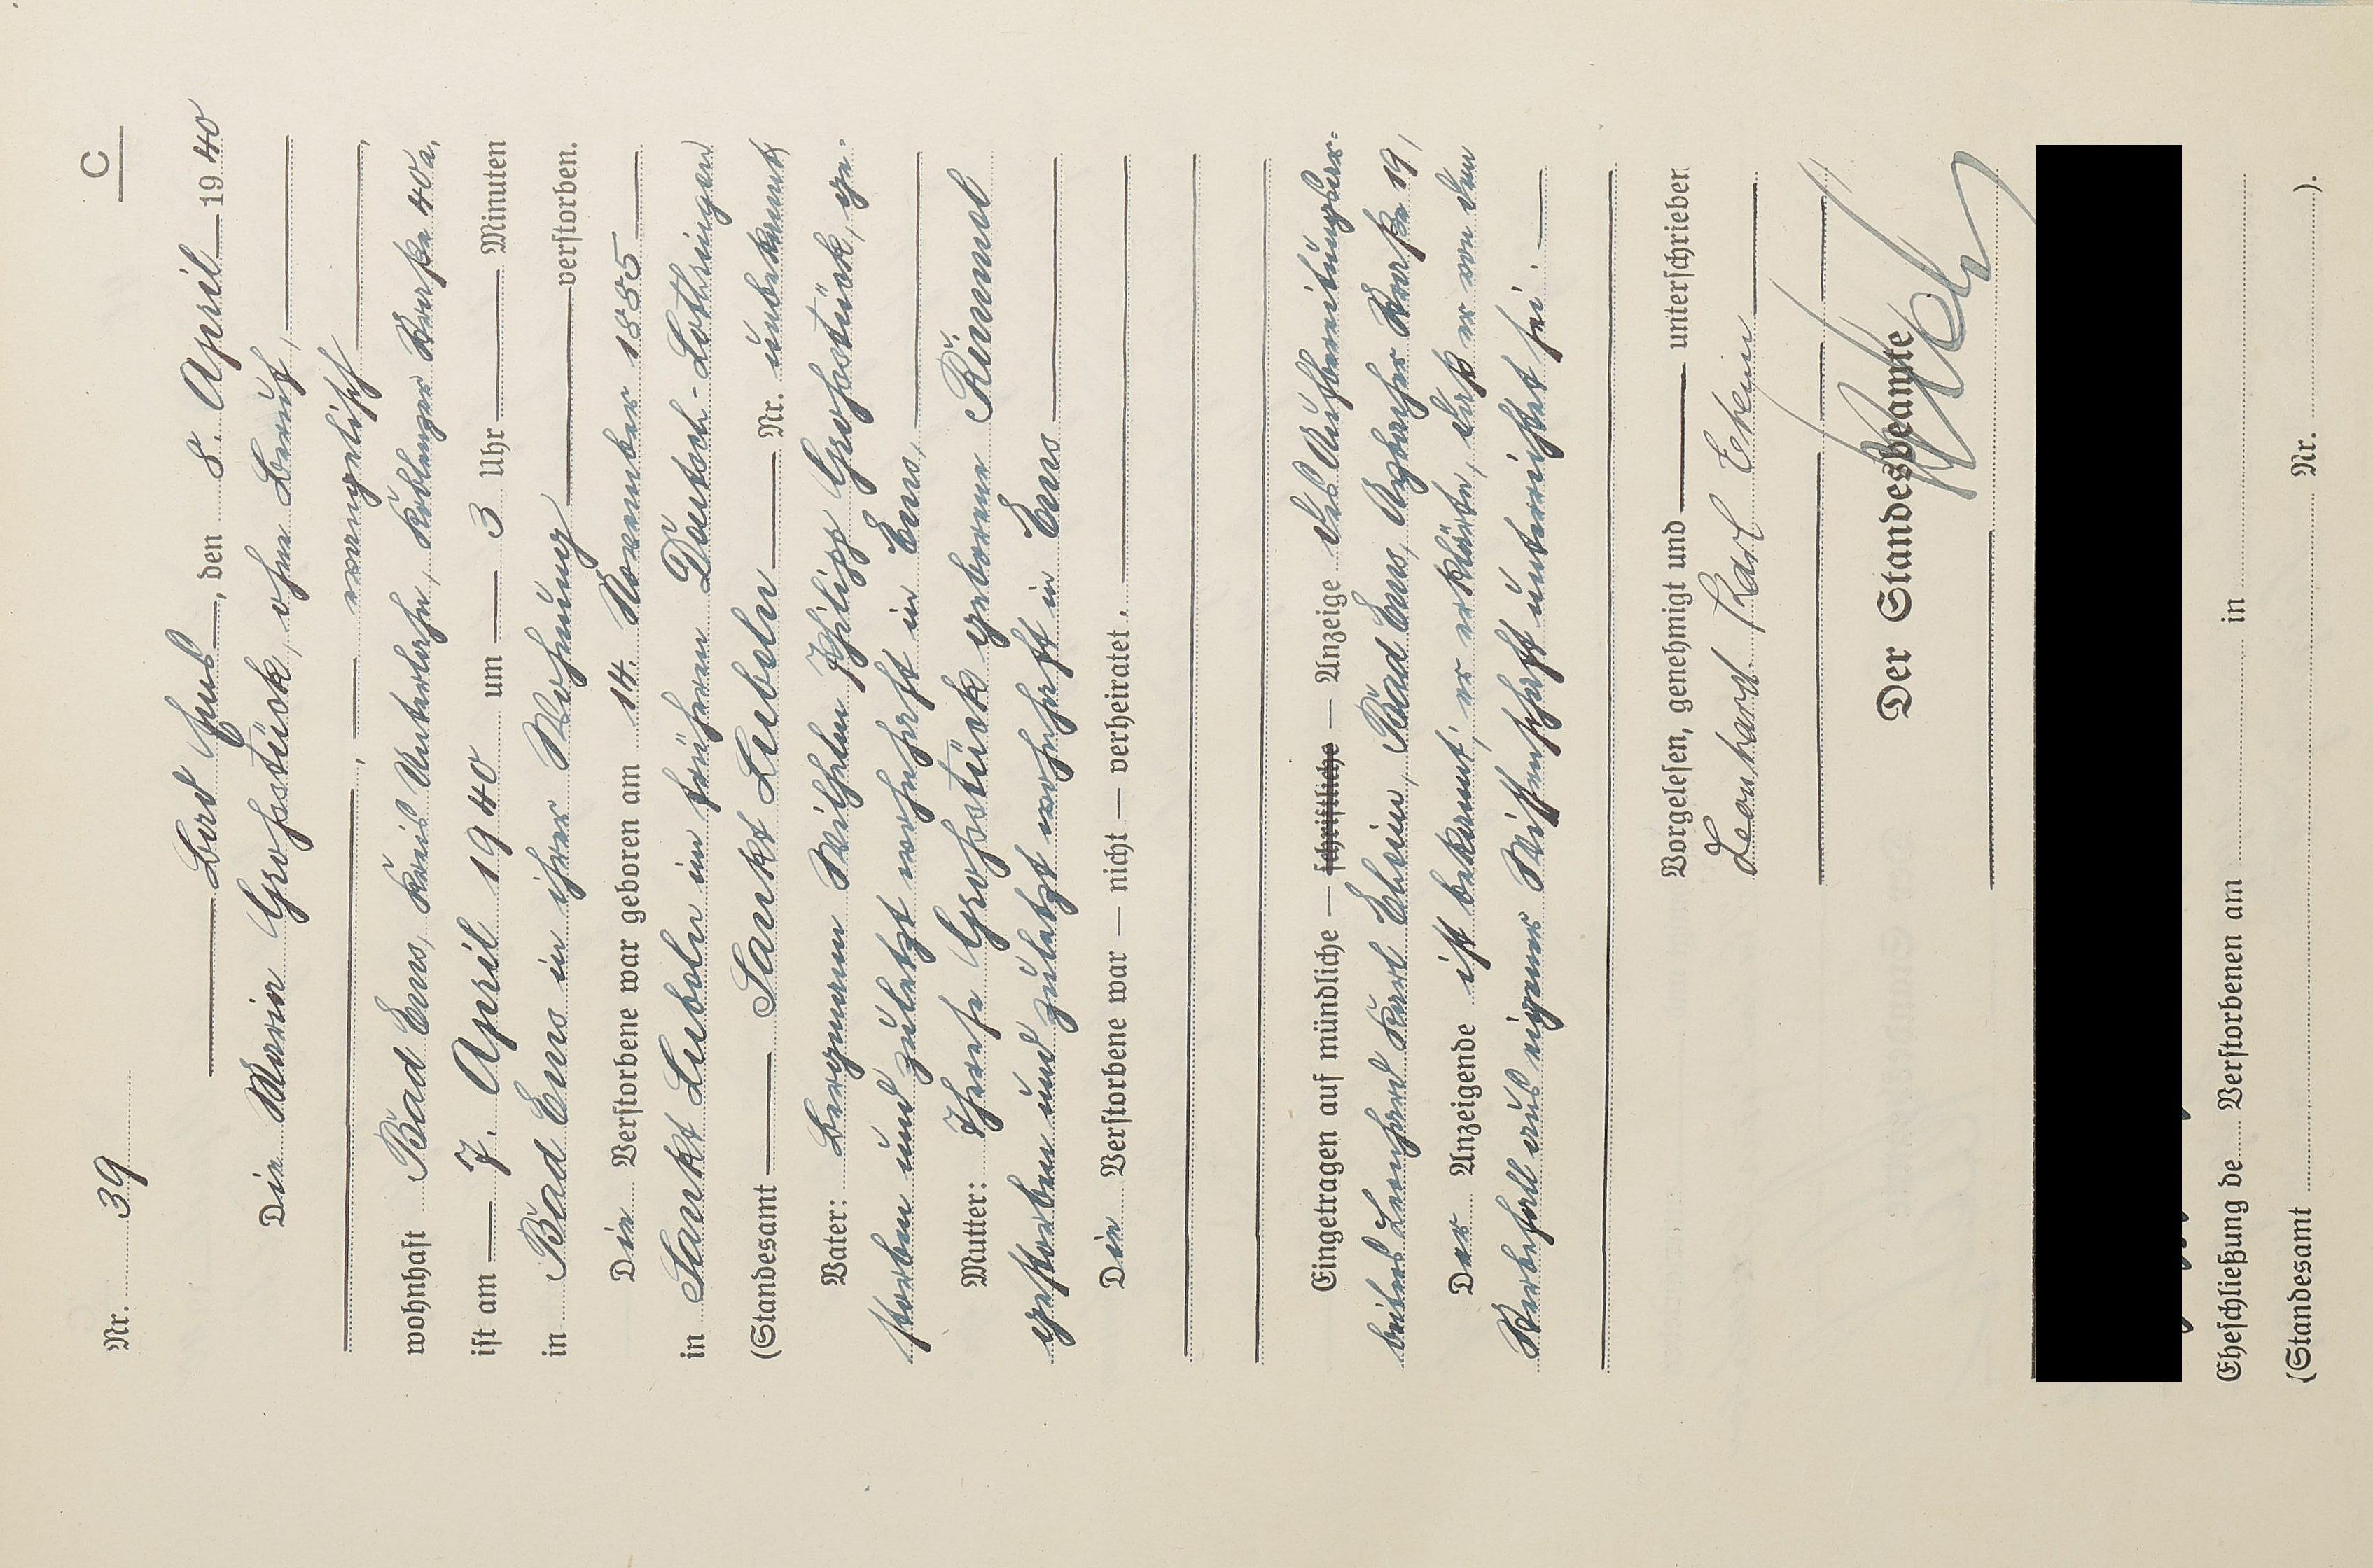 C
Nr. 39
Bad Ems, den 8. April 1940
Die Maria Großstück, ohne Beruf,
evangelisch
wohnhaft Bad Ems, Kreis Unterlahn, Koblenzer Straße 40a,
ist am 7. April 1940 um 3 Uhr Minuten
in Bad Ems in ihrer Wohnung verstorben.
Die Verstorbene war geboren am 14. November 1885
in Sankt Leboln im früheren Deutsch-Lothringen
(Standesamt Sankt Leboln Nr. unbekannt
Vater: Bergmann Wilhelm Philipp Großstück, ge-
storben und zuletzt wohnhaft in Ems,
Mutter: Therese Großstück geborene Kimmel
gestorben und zuletzt wohnhaft in Ems
Die Verstorbene war — nicht — verheiratet.
Eingetragen auf mündliche — schriftliche — Anzeige des Aufbereitungsar-
beiters Leonhard Karl Ehrim, Bad Ems, Arzbacher Straße 19,
Der Anzeigende ist bekannt; er erklärte, daß er von dem
Sterbefall aus eigener Wissenschaft unterrichtet sei.
Vorgelesen, genehmigt und unterschrieben
Leonhard Karl
Der Standesbeamte
Eheschließung de Verstorbenen am in
(Standesamt Nr. ).